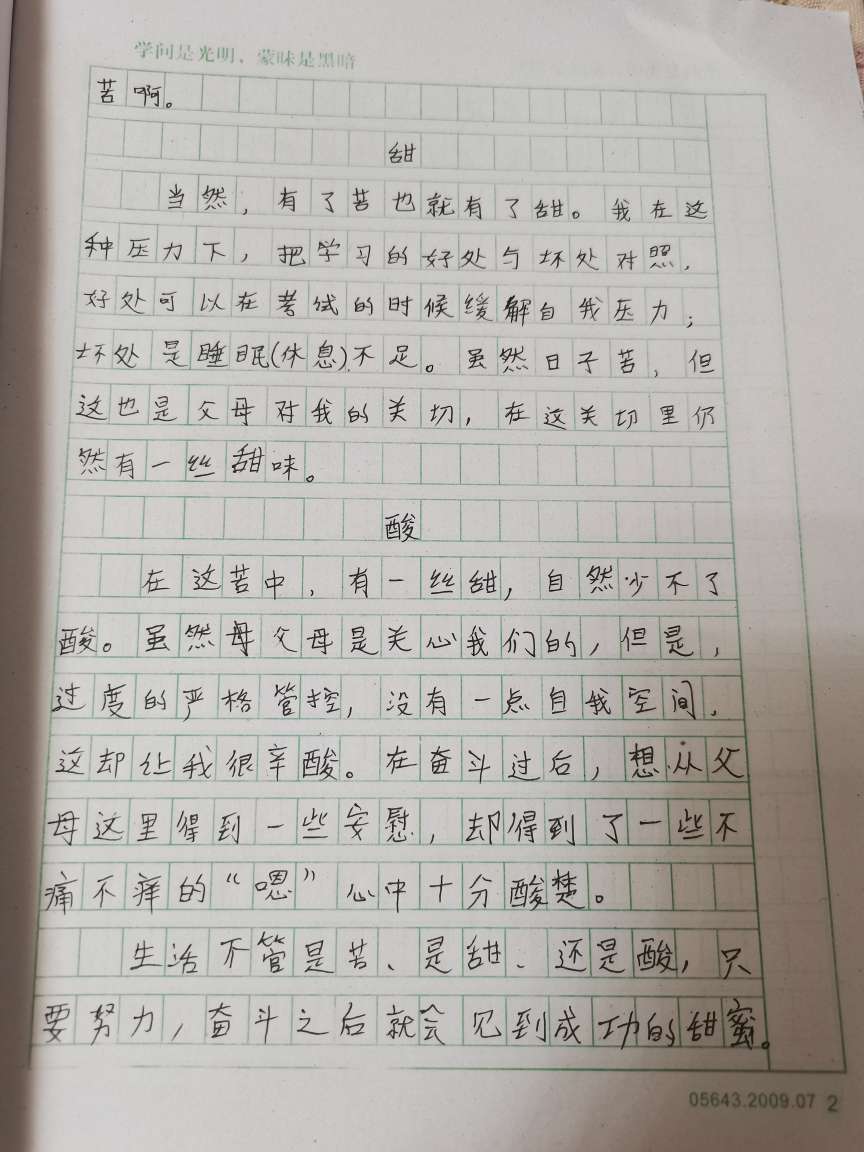 学问是光明，蒙昧是黑暗
苦啊。
甜
当然，有了苦也就有了甜。我在这
种压力下，把学习的好处与坏处对照，
好处可以在考试的时候缓解自我压力；
坏处是睡眠(休息)不足。虽然日子苦，但
这也是父母对我的关切，在这关切里仍
然有一丝甜味。
酸
在这苦中，有一丝甜，自然少不了
酸。虽然母父母是关心我们的，但是，
过度的严格管控，没有一点自我空间，
这却让我很辛酸。在奋斗过后，想从父
母这里得到一些安慰，却得到了一些不
痛不痒的“嗯”心中十分酸楚。
生活不管是苦、是甜、还是酸，只
要努力，奋斗之后就会见到成功的甜蜜。
05643.2009.07 2